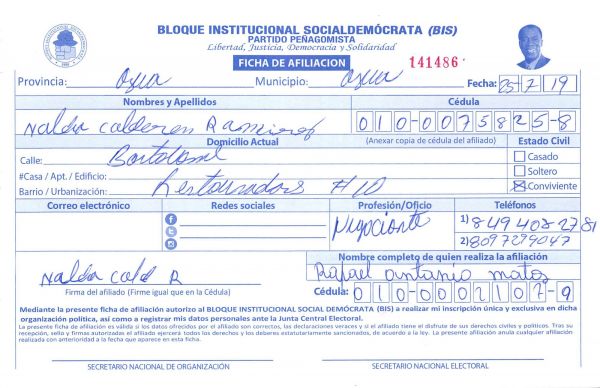 BLOQUE INSTITUCIONAL SOCIALDEMÓCRATA (BIS)
PARTIDO PEÑAGOMISTA
Libertad, Justicia, Democracia y Solidaridad
FICHA DE AFILIACION 141486
Provincia: Azua Municipio: Azua Fecha: 25-7-19
Nombres y Apellidos Cédula
Nalda Calderon Ramirez 010-0075825-8
Domicilio Actual (Anexar copia de cédula del afiliado) Estado Civil
Calle: Bartolome Casado
#Casa / Apt. / Edificio: Soltero
Barrio / Urbanización: Restauradora #10 Conviviente
Correo electrónico Redes sociales Profesión/Oficio Teléfonos
Negociante 1) 849 408 2781
2) 8097299047
Nombre completo de quien realiza la afiliación
Nalda Cald R Rafael antanio matos
Firma del afiliado (Firme igual que en la Cédula) Cédula: 010-0002107-9
Mediante la presente ficha de afiliación autorizo al BLOQUE INSTITUCIONAL SOCIAL DEMÓCRATA (BIS) a realizar mi inscripción única y exclusiva en dicha
organización política, así como a registrar mis datos personales ante la Junta Central Electoral.
La presente ficha de afiliación es válida si los datos ofrecidos por el afiliado son correctos, las declaraciones veraces y si el afiliado tiene el disfrute de sus derechos civiles y políticos. Tras su
recepción, sello y firmas autorizadas el afiliado ejercerá todos los derechos y los deberes estatutariamente sancionados, de acuerdo de la ley. La presente afiliación anula cualquier afiliación
realizada con anterioridad a la fecha que aparece en esta ficha.
SECRETARIO NACIONAL DE ORGANIZACIÓN SECRETARIO NACIONAL ELECTORAL